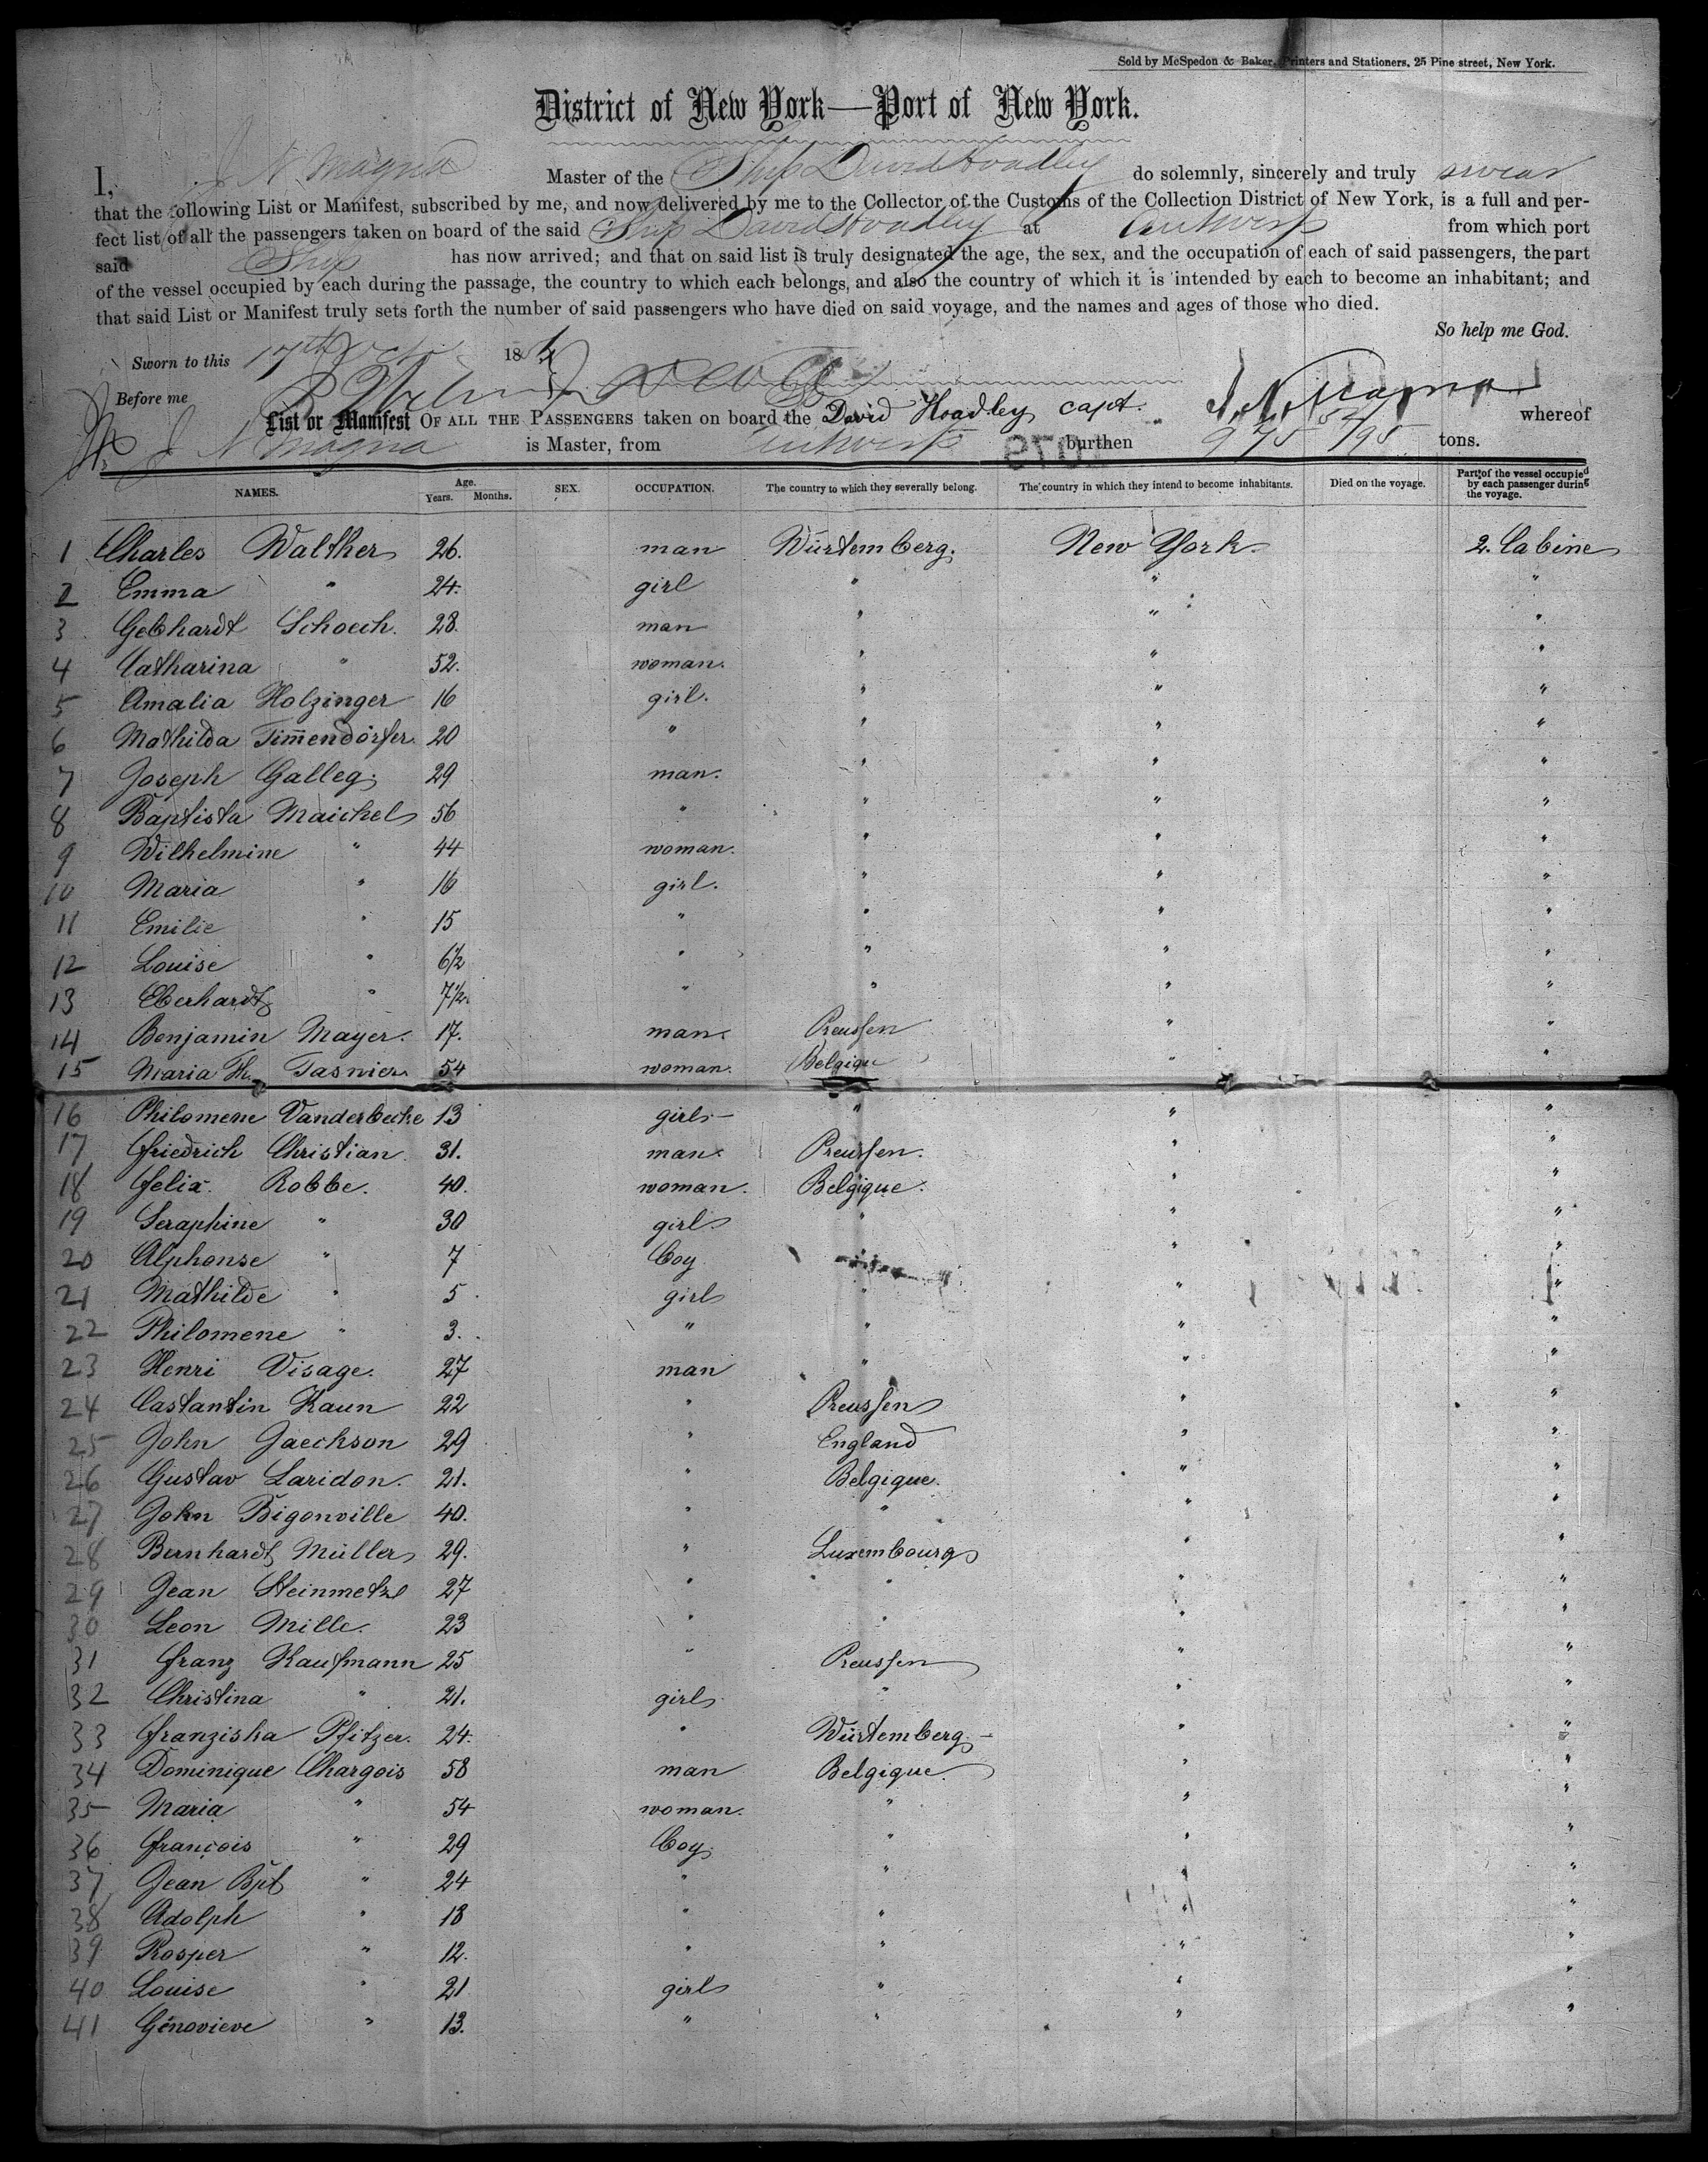 Sold by McSpedon & Baker, Printers and Stationers, 25 Pine street, New York.
District of New York—Port of New York.
I, J N Magna Master of the Ship David Hoadley do solemnly, sincerely and truly swear
that the following List or Manifest, subscribed by me, and now delivered by me to the Collector of the Customs of the Collection District of New York, is a full and per-
fect list of all the passengers taken on board of the said Ship David Hoadley at Antwerp from which port
said Ship has now arrived; and that on said list is truly designated the age, the sex, and the occupation of each of said passengers, the part
of the vessel occupied by each during the passage, the country to which each belongs, and also the country of which it is intended by each to become an inhabitant; and
that said List or Manifest truly sets forth the number of said passengers who have died on said voyage, and the names and ages of those who died.
So help me God.
Sworn to this 17th 186
Before me J. N. Magna
List or Manifest OF ALL THE PASSENGERS taken on board the David Hoadley capt. whereof
J N Magna is Master, from Antwerp burthen 975 52/95 tons.
NAMES. Age. Years. Months. SEX. OCCUPATION. The country to which they severally belong. The country in which they intend to become inhabitants. Died on the voyage. Part of the vessel occupied by each passenger during the voyage.
1 Charles Walther 26. man Würtemberg. New York. 2. Cabine
2 Emma " 24. girl " " "
3 Gebhardt Schoech. 28. man " " "
4 Catharina " 52. woman. " " "
5 Amalia Holzinger 16 girl. " " "
6 Mathilda Tim̄endörfer. 20 " " " "
7 Joseph Galleg. 29 man. " " "
8 Baptista Maichel 56 " " " "
9 Wilhelmine " 44 woman. " " "
10 Maria " 16 girl. " " "
11 Emilie " 15 " " " "
12 Louise " 6½ " " " "
13 Eberhardt " 7½ " " " "
14 Benjamin Mayer. 17. man. Preussen " "
15 Maria Th. Tasnier 54 woman. Belgique " "
16 Philomene Vanderbecke 13 girl " " "
17 Friedrich Christian 31. man. Preussen. " "
18 Felix. Robbe. 40. woman. Belgique. " "
19 Seraphine " 30 girl " " "
20 Alphonse " 7 boy " " "
21 Mathilde " 5 girl " " "
22 Philomene " 3. " " " "
23 Henri Visage. 27 man " " "
24 Castantin Kaun 22 " Preussen " "
25 John Jaeckson 29 " England " "
26 Gustav Laridon. 21. " Belgique. " "
27 John Bigonville 40. " " " "
28 Bernhardt Müller 29. " Luxembourg " "
29 Jean Steinmetz 27 " " " "
30 Leon Mille. 23 " " " "
31 Franz Kaufmann 25 " Preussen " "
32 Christina " 21. girl " " "
33 Franziska Pfitzer. 24. " Würtemberg. " "
34 Dominique Chargois 58 man Belgique. " "
35 Maria " 54 woman. " " "
36 François " 29 boy " " "
37 Jean Bpt " 24 " " " "
38 Adolph " 18 " " " "
39 Prosper " 12. " " " "
40 Louise " 21 girl " " "
41 Génovieve " 13. " " " "